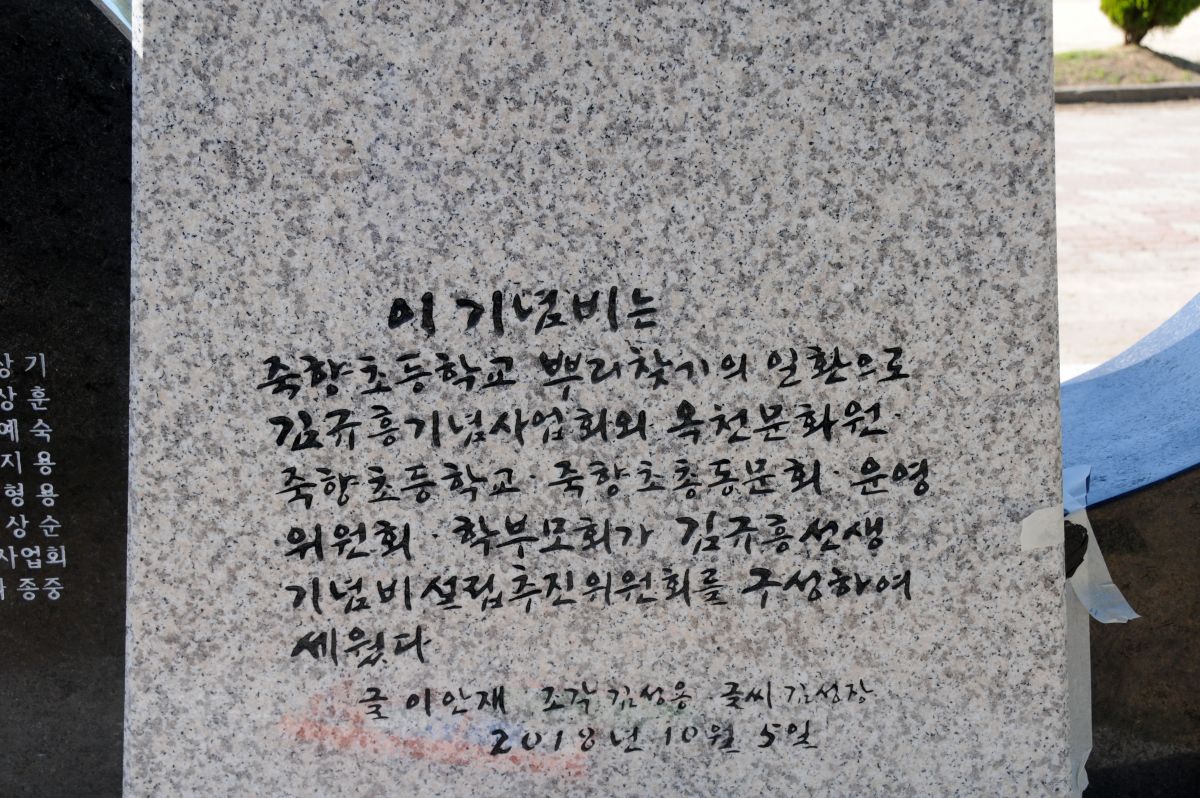 상 기
상 훈
예 숙
지 용
형 용
상 순
사업회
종중
이 기념비는
죽향초등학교 뿌리찾기의 일환으로
김규흥기념사업회와 옥천문화원·
죽향초등학교·죽향초총동문회·운영
위원회·학부모회가 김규흥선생
기념비설립추진위원회를 구성하여
세웠다
글 이안재 조각 김성용 · 글씨 김성장
2018년 10월 5일